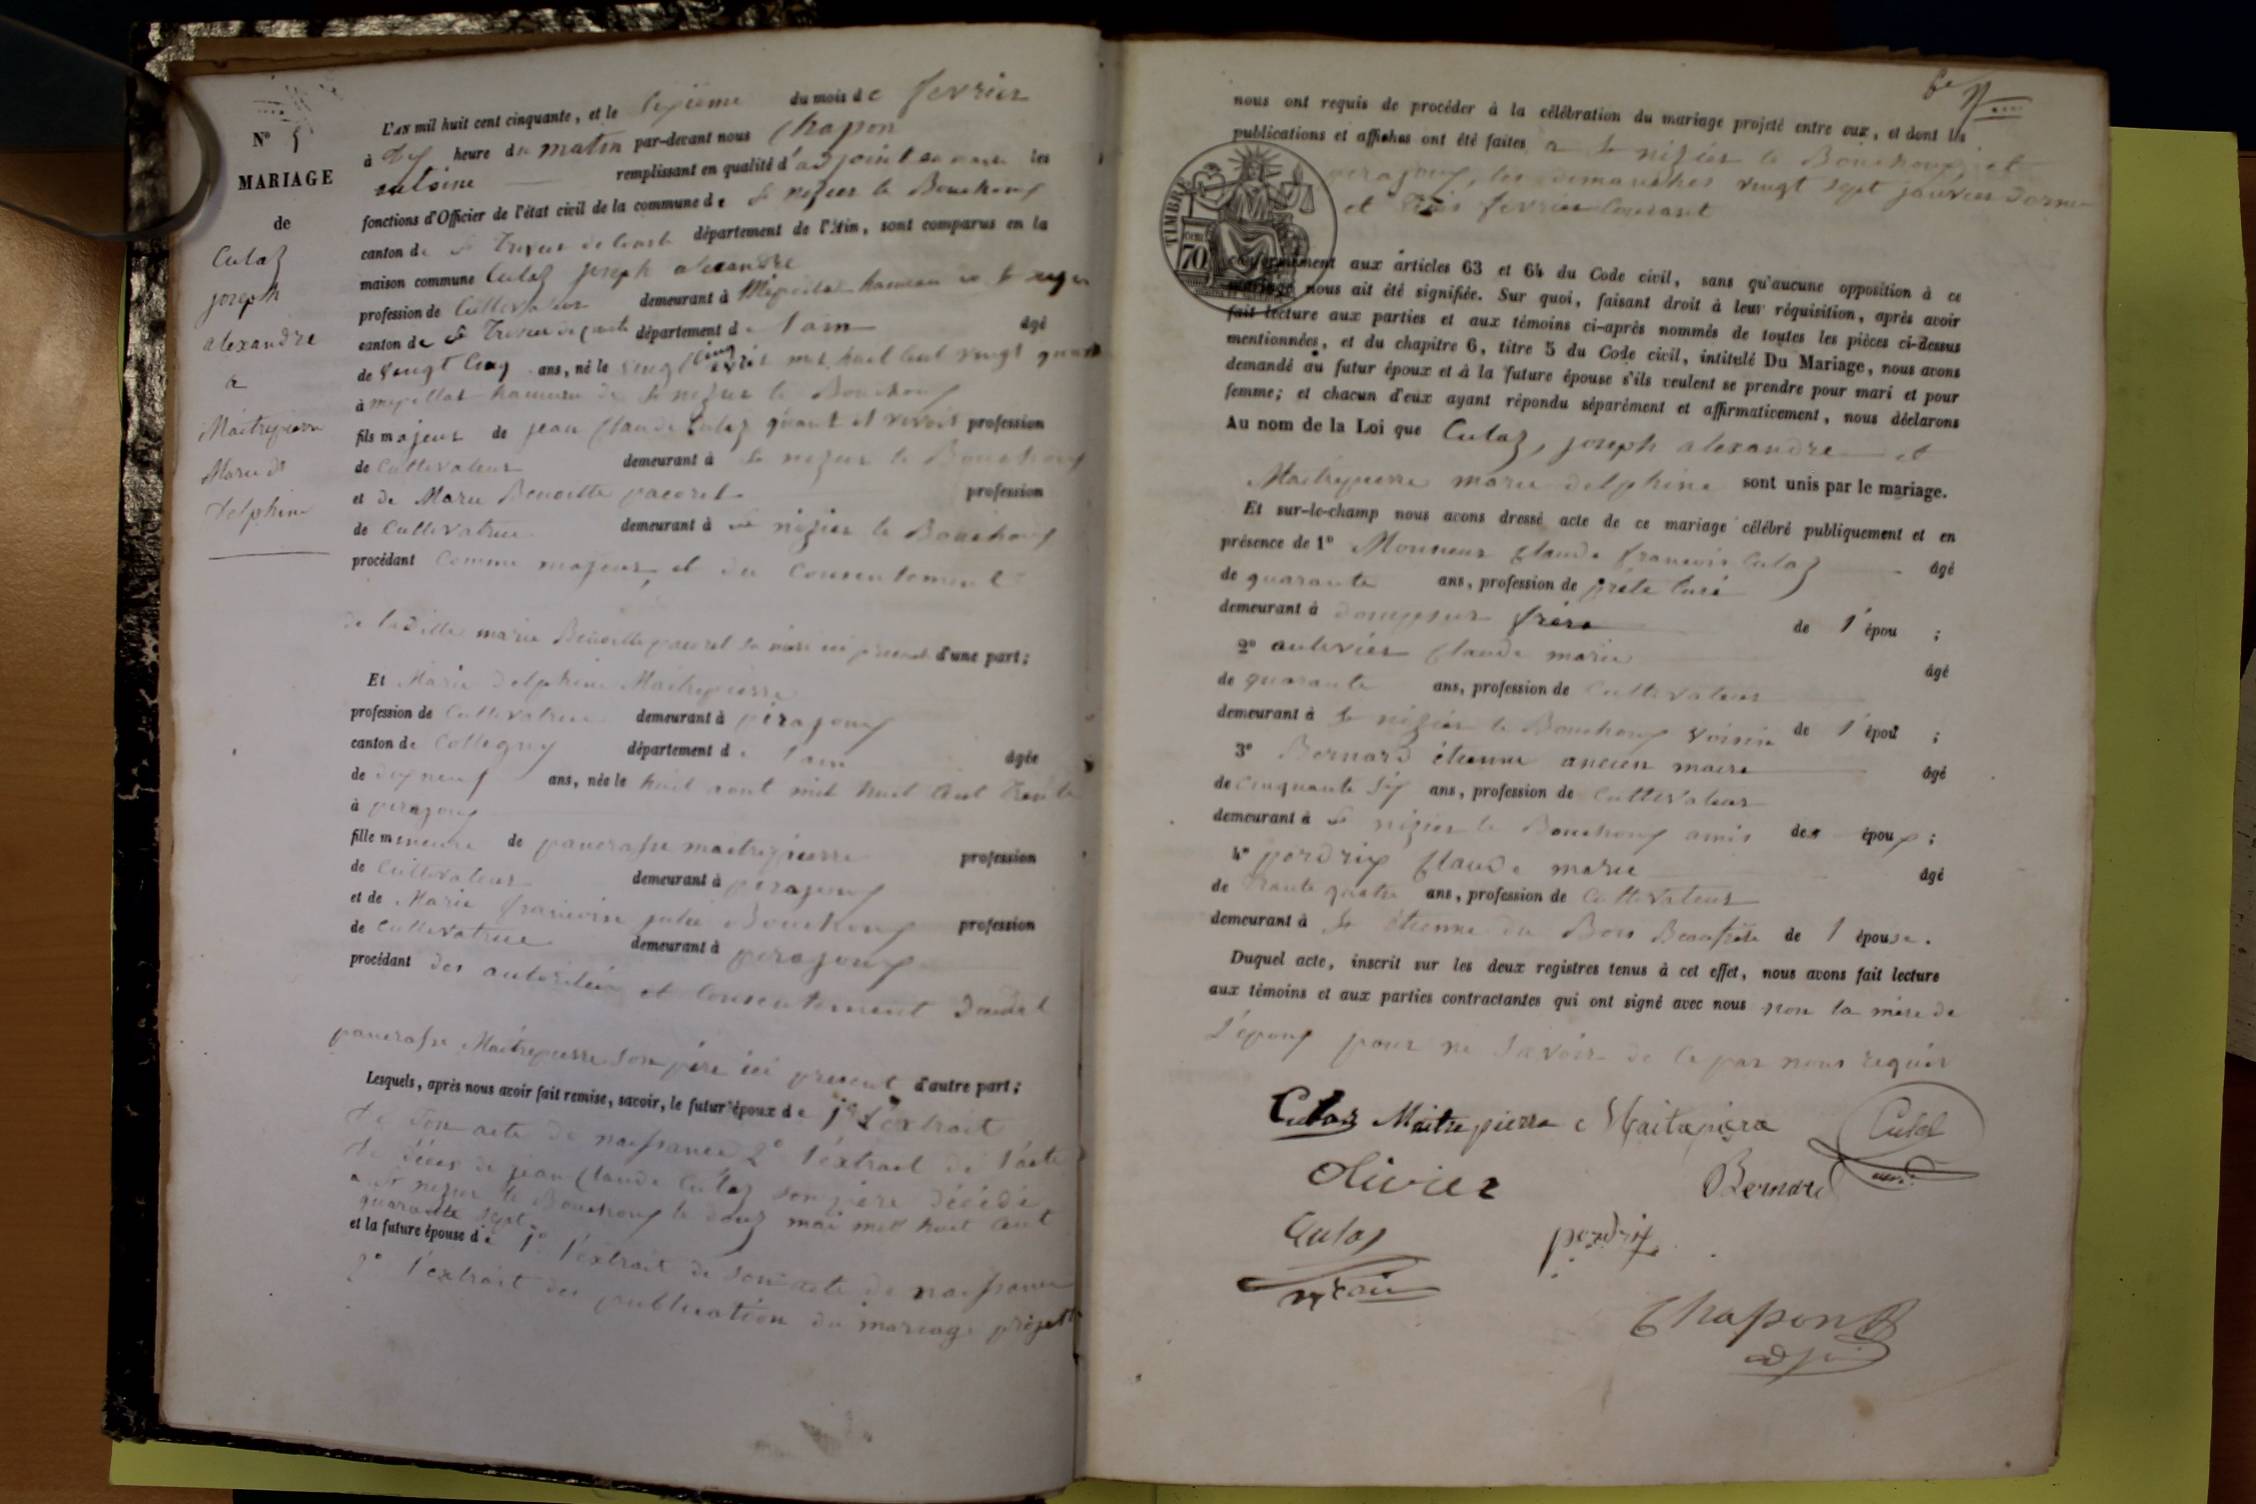 N° 5
MARIAGE
de
Culaz
joseph
alexandre
a
Maitrepierre
Marie
delphine
L'AN mil huit cent cinquante, et le septieme du mois de fevrier
à dix heure du matin par-devant nous Chapon
antoine remplissant en qualité d'adjoint au maire les
fonctions d'Officier de l'état civil de la commune de St nizier le Bouchoux
canton de St Trivier de Courte département de l'Ain, sont comparus en la
maison commune Culaz joseph alexandre
profession de Cultivateur demeurant à Mepillat hameau de St nizier
canton de St Trivier de Courte département de l'ain âgé
de vingt cinq ans, né le vingt cinq mil huit cent vingt quatre
à mepillat hameau de St nizier le Bouchoux
fils majeur de jean Claude Culaz quant il vivoit profession
de Cultivateur demeurant à St nizier le Bouchoux
et de Marie Benoitte pacoret profession
de Cultivatrice demeurant à St nizier le Bouchoux
procédant comme majeur et du consentement
de ladille marie Benoitte pacoret sa mère ici presente d'une part;
Et Marie delphine Maitrepierre
profession de Cultivatrice demeurant à pirajoux
canton de Colligny département de l'ain âgée
de dix neuf ans, née le huit aout mil huit cent trente
à pirajoux
fille mineure de pancrasse maitrepierre profession
de Cultivateur demeurant à pirajoux
et de Marie francoise julie Bouchoux profession
de Cultivatrice demeurant à pirajoux
procédant des autorité et consentement dudit
pancrasse Maitrepierre son père ici present d'autre part;
Lesquels, après nous avoir fait remise, savoir, le futur époux de 1° l'extrait
de son acte de naissance 2° l'extrait de l'acte
de décès de jean Claude Culaz son père décédé
a St nizier le Bouchoux le douz mai mil huit cent
quarante sept
et la future épouse de 1° l'extrait de son acte de naissance
2° l'extrait des publication du mariage projetté
nous ont requis de procéder à la célébration du mariage projeté entre eux, et dont les
publications et affiches ont été faites a St nizier le Bouchoux, et
pirajoux, les dimanches vingt sept janvier dernier
et trois fevrier Courant
TIMBRE
70
conformément aux articles 63 et 64 du Code civil, sans qu'aucune opposition à ce
mariage nous ait été signifiée. Sur quoi, faisant droit à leur réquisition, après avoir
fait lecture aux parties et aux témoins ci-après nommés de toutes les pièces ci-dessus
mentionnées, et du chapitre 6, titre 5 du Code civil, intitulé Du Mariage, nous avons
demandé au futur époux et à la future épouse s'ils veulent se prendre pour mari et pour
femme; et chacun d'eux ayant répondu séparément et affirmativement, nous déclarons
Au nom de la Loi que Culaz, joseph alexandre et
Maitrepierre marie delphine sont unis par le mariage.
Et sur-le-champ nous avons dressé acte de ce mariage célébré publiquement et en
présence de 1° Monsieur Claude francois Culaz âgé
de quarante ans, profession de prete Curé
demeurant à frère de l'épou ;
2° Claude marie âgé
de quarante ans, profession de Cultivateur
demeurant à St nizier le Bouchoux voisin de l'épou ;
3° Bernard étienne ancien maire âgé
de cinquante six ans, profession de Cultivateur
demeurant à St nizier le Bouchoux amis des époux ;
4° perdrix Claude marie âgé
de trante quatre ans, profession de Cultivateur
demeurant à St étienne du Bois Beaufrère de l'épouse.
Duquel acte, inscrit sur les deux registres tenus à cet effet, nous avons fait lecture
aux témoins et aux parties contractantes qui ont signé avec nous non la mère de
l'époux pour ne savoir de ce par nous requis
Culaz Maitrepierre Maitrepiere Culaz
curé
Olivier Bernard
Culaz perdrix
Chapon
adjoint